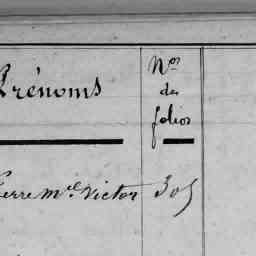 Prénoms
Nos
des
folios
Pierre mel Victor 305